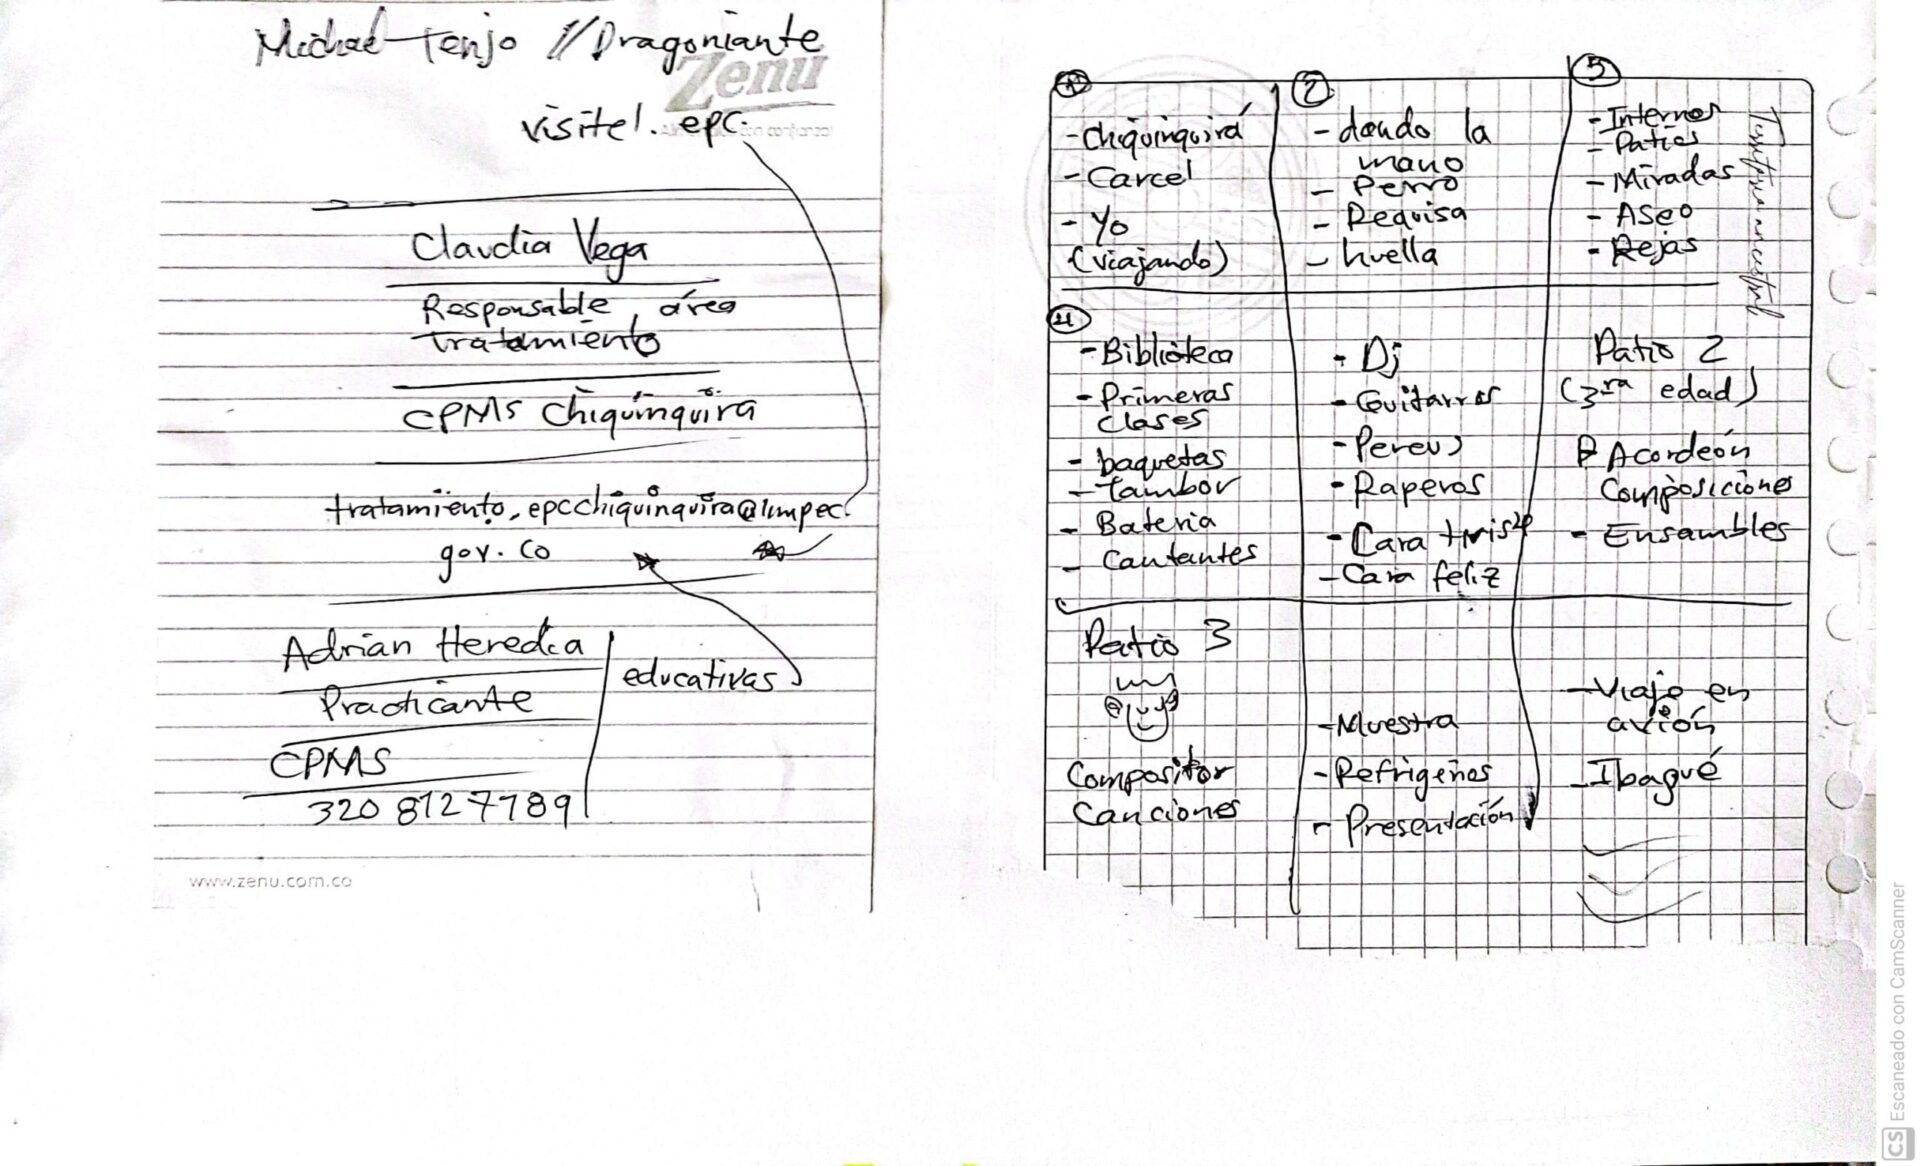 Michael Tenjo // Dragoniante
Zenú
visite1.epc.
Claudia Vega
Responsable área
tratamiento
CPMS Chiquinquira
tratamiento.epcchiquinquira@impec.
gov.co
Adrian Heredia
educativas
Practicante
CPMS
320 8127789
www.zenu.com.co
1
- Chiquinquirá
- Carcel
- Yo
(viajando)
2
- dando la
mano
- Perro
- Requisa
- huella
3
- Internos
- Patios
- Miradas
- Aseo
- Rejas
4
- Biblioteca
- Primeras
clases
- baquetas
- tambor
- Bateria
- Cantantes
- Dj
- Guitarras
- Raperos
- Cara triste
- Cara feliz
Patio 2
(3ra edad)
Acordeón
Composiciones
- Ensambles
Patio 3
Compositor
Canciones
- Muestra
- Refrigerios
- Presentación
- Viaje en
avión
- Ibagué
CS Escaneado con CamScanner